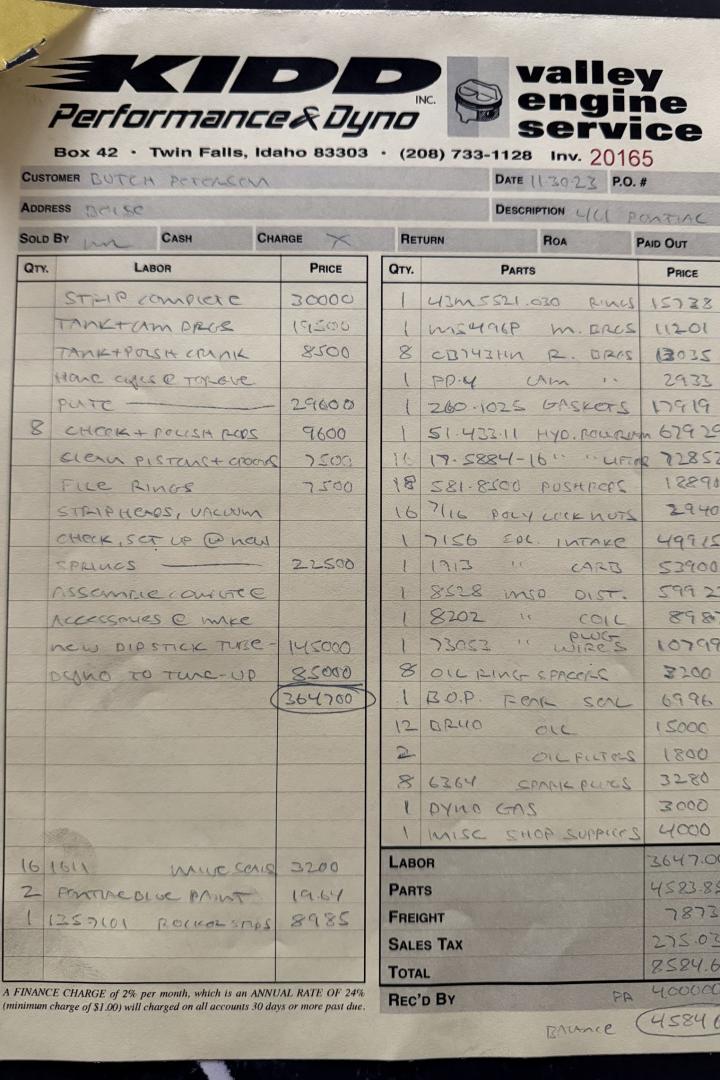 KIDD INC.
Performance & Dyno
valley
engine
service
Box 42 • Twin Falls, Idaho 83303 • (208) 733-1128 Inv. 20165
CUSTOMER BUTCH PETERSEN DATE 11-30-23 P.O. #
ADDRESS BOISE DESCRIPTION PONTIAC
SOLD BY CASH CHARGE X RETURN ROA PAID OUT
QTY. LABOR PRICE
STRIP COMPLETE 30000
TANK + CAM BRGS 19500
TANK + POLISH CRANK 8500
HONE CYLS @ TORQUE
PLATE — 29600
8 CHECK + POLISH RODS 9600
CLEAN PISTONS + GROOVES 7500
FILE RINGS 7500
STRIP HEADS, VACUUM
CHECK, SET UP @ NEW
SPRINGS — 22500
ASSEMBLE COMPLETE
ACCESSORIES @ MAKE
NEW DIPSTICK TUBE - 145000
DYNO TO TUNE-UP 85000
364700
16 1611 VALVE SEALS 3200
2 PONTIAC BLUE PAINT 19.64
1 ROCKER 8985
QTY. PARTS PRICE
1 43M5521.030 RINGS 15738
1 MS496P M. BRGS 11201
8 CB743HN R. BRGS 13035
1 PD-4 CAM " 2933
1 260-1025 GASKETS 17919
1 51-433-11 HYD. ROLLER 67929
16 17-5884-16 " " LIFTER 72852
18 581-8500 PUSHRODS 1889
16 7/16 POLY LOCK NUTS 2940
1 7156 EDL. INTAKE 49915
1 1913 " CARB 53900
1 8528 MSD DIST. 5992
1 8202 " COIL 898
1 73053 " PLUG WIRES 10799
8 OIL RING SPACERS 3200
1 B.O.P. REAR SEAL 6996
12 BR40 OIL 15000
2 OIL FILTERS 1800
8 6364 SPARK PLUGS 3280
1 DYNO GAS 3000
1 MISC SHOP SUPPLIES 4000
LABOR 3647.00
PARTS 4583.8
FREIGHT 7873
SALES TAX 275.03
TOTAL 8584.6
REC'D BY PA 400000
BALANCE 4584 6
A FINANCE CHARGE of 2% per month, which is an ANNUAL RATE OF 24%
(minimum charge of $1.00) will charged on all accounts 30 days or more past due.